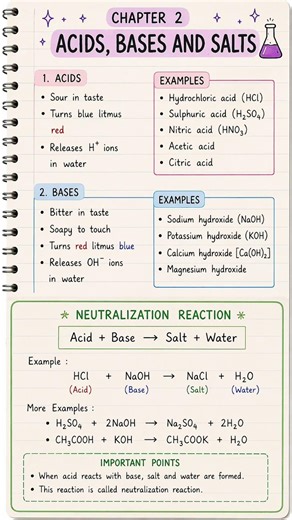 CHAPTER 2
ACIDS, BASES AND SALTS
1. ACIDS
• Sour in taste
• Turns blue litmus
red
• Releases H⁺ ions
in water
EXAMPLES
• Hydrochloric acid (HCl)
• Sulphuric acid (H₂SO₄)
• Nitric acid (HNO₃)
• Acetic acid
• Citric acid
2. BASES
• Bitter in taste
• Soapy to touch
• Turns red litmus blue
• Releases OH⁻ ions
in water
EXAMPLES
• Sodium hydroxide (NaOH)
• Potassium hydroxide (KOH)
• Calcium hydroxide [Ca(OH)₂]
• Magnesium hydroxide
* NEUTRALIZATION REACTION *
Acid + Base → Salt + Water
Example :
HCl + NaOH → NaCl + H₂O
(Acid) (Base) (Salt) (Water)
More Examples :
• H₂SO₄ + 2NaOH → Na₂SO₄ + 2H₂O
• CH₃COOH + KOH → CH₃COOK + H₂O
IMPORTANT POINTS
• When acid reacts with base, salt and water are formed.
• This reaction is called neutralization reaction.